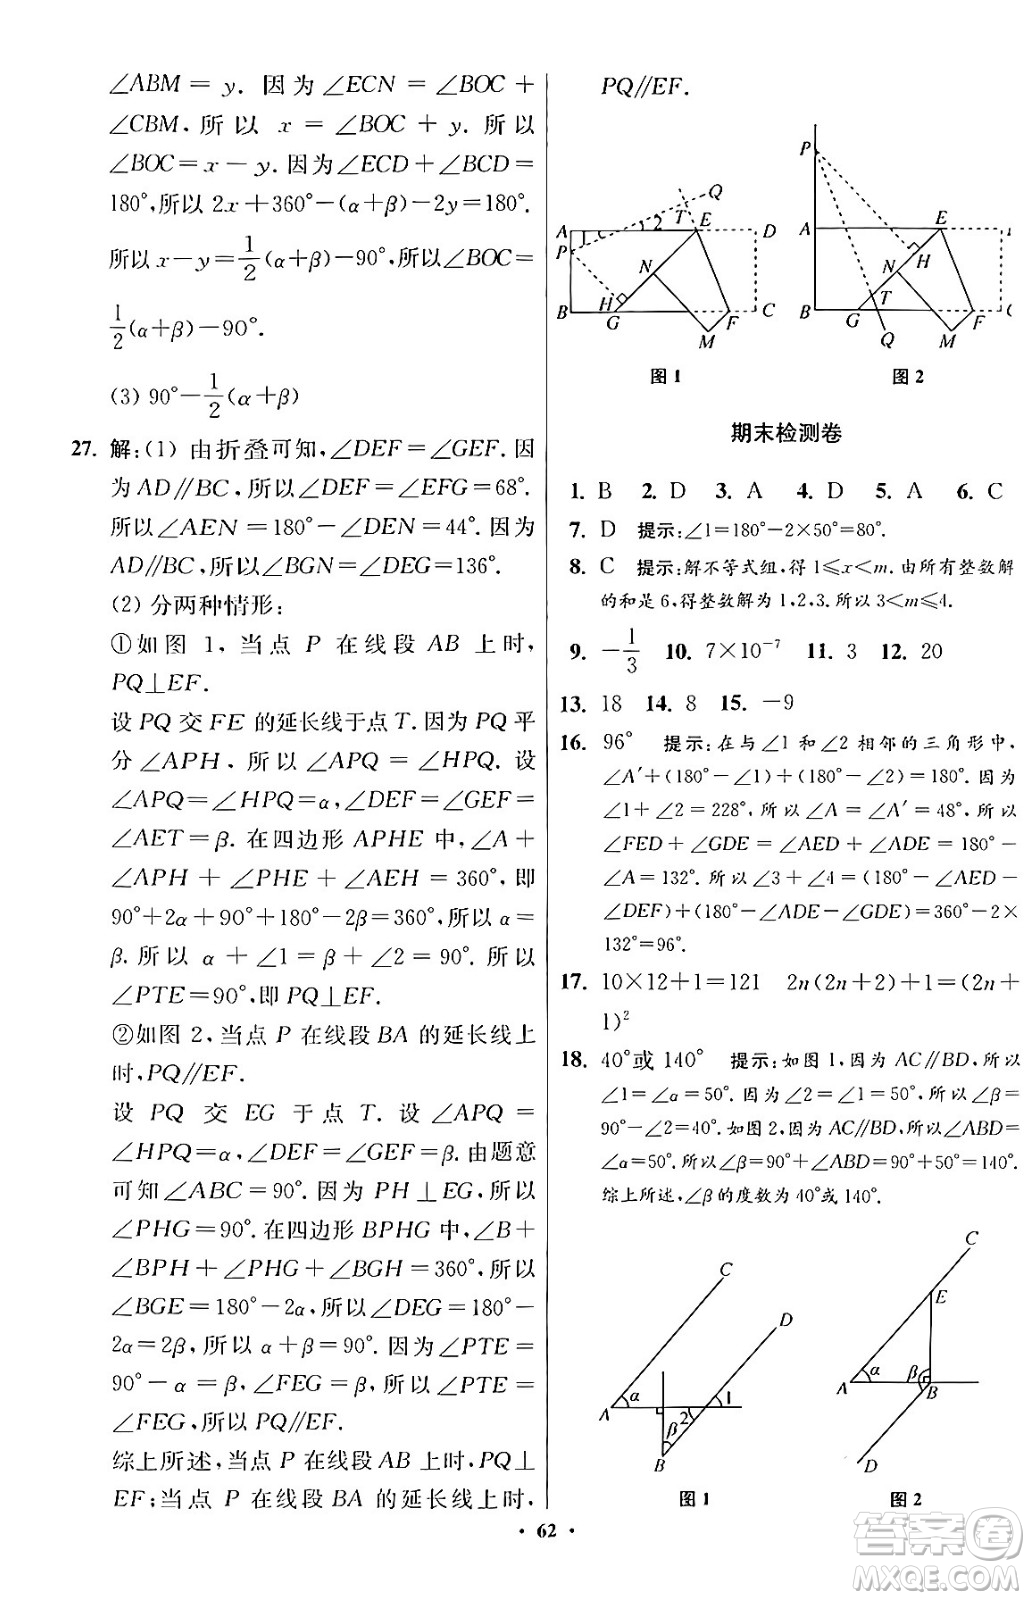 ∠ABM = y. 因为∠ECN = ∠BOC +
∠CBM, 所以 x = ∠BOC + y. 所以
∠BOC=x-y. 因为∠ECD+∠BCD=
180°,所以 2x+360°-(α+β)-2y=180°.
所以 x-y=1/2(α+β)-90°,所以∠BOC=
1/2(α+β)-90°.
(3) 90°-1/2(α+β)
27. 解:(1) 由折叠可知,∠DEF=∠GEF. 因
为 AD∥BC,所以∠DEF=∠EFG=68°.
所以∠AEN=180°-∠DEN=44°. 因为
AD∥BC,所以∠BGN=∠DEG=136°.
(2) 分两种情形:
①如图 1, 当点 P 在线段 AB 上时,
PQ⊥EF.
设 PQ 交 FE 的延长线于点 T. 因为 PQ 平
分∠APH, 所以∠APQ = ∠HPQ. 设
∠APQ=∠HPQ=α,∠DEF=∠GEF=
∠AET=β. 在四边形 APHE 中,∠A+
∠APH + ∠PHE + ∠AEH = 360°, 即
90°+2α+90°+180°-2β=360°,所以 α=
β. 所以 α+∠1=β+∠2=90°. 所以
∠PTE=90°,即 PQ⊥EF.
②如图 2,当点 P 在线段 BA 的延长线上
时,PQ∥EF.
设 PQ 交 EG 于点 T. 设∠APQ =
∠HPQ=α,∠DEF=∠GEF=β. 由题意
可知∠ABC=90°. 因为 PH⊥EG,所以
∠PHG=90°. 在四边形 BPHG 中,∠B+
∠BPH+∠PHG+∠BGH=360°,所以
∠BGE=180°-2α,所以∠DEG=180°-
2α=2β,所以 α+β=90°. 因为∠PTE=
90° - α = β, ∠FEG = β, 所以∠PTE =
∠FEG,所以 PQ∥EF.
综上所述,当点 P 在线段 AB 上时,PQ⊥
EF;当点 P 在线段 BA 的延长线上时,
PQ∥EF.
Q
A 1 2 T E D
P
N
H
B G F C
M
图 1
P
A E
N H
T
B G F
Q M
图 2
期末检测卷
1. B 2. D 3. A 4. D 5. A 6. C
7. D 提示:∠1=180°-2×50°=80°.
8. C 提示:解不等式组,得 1≤x<m. 由所有整数解
的和是 6,得整数解为 1,2,3. 所以 3<m≤4.
9. -1/3 10. 7×10⁻⁷ 11. 3 12. 20
13. 18 14. 8 15. -9
16. 96° 提示:在与∠1 和∠2 相邻的三角形中,
∠A′+(180°-∠1)+(180°-∠2)=180°. 因为
∠1+∠2=228°,所以∠A=∠A′=48°,所以
∠FED+∠GDE=∠AED+∠ADE=180°-
∠A=132°. 所以∠3+∠4=(180°-∠AED-
∠DEF)+(180°-∠ADE-∠GDE)=360°-2×
132°=96°.
17. 10×12+1=121 2n(2n+2)+1=(2n+
1)²
18. 40°或 140° 提示:如图 1,因为 AC∥BD,所以
∠1=∠α=50°. 因为∠2=∠1=50°,所以∠β=
90°-∠2=40°. 如图 2,因为 AC∥BD,所以∠ABD=
∠α=50°. 所以∠β=90°+∠ABD=90°+50°=140°.
综上所述,∠β的度数为 40°或 140°.
C
D
A α 2 1
β
B
图 1
C
E
A α β B
D
图 2
• 62 •
答案圈
MXQE.COM